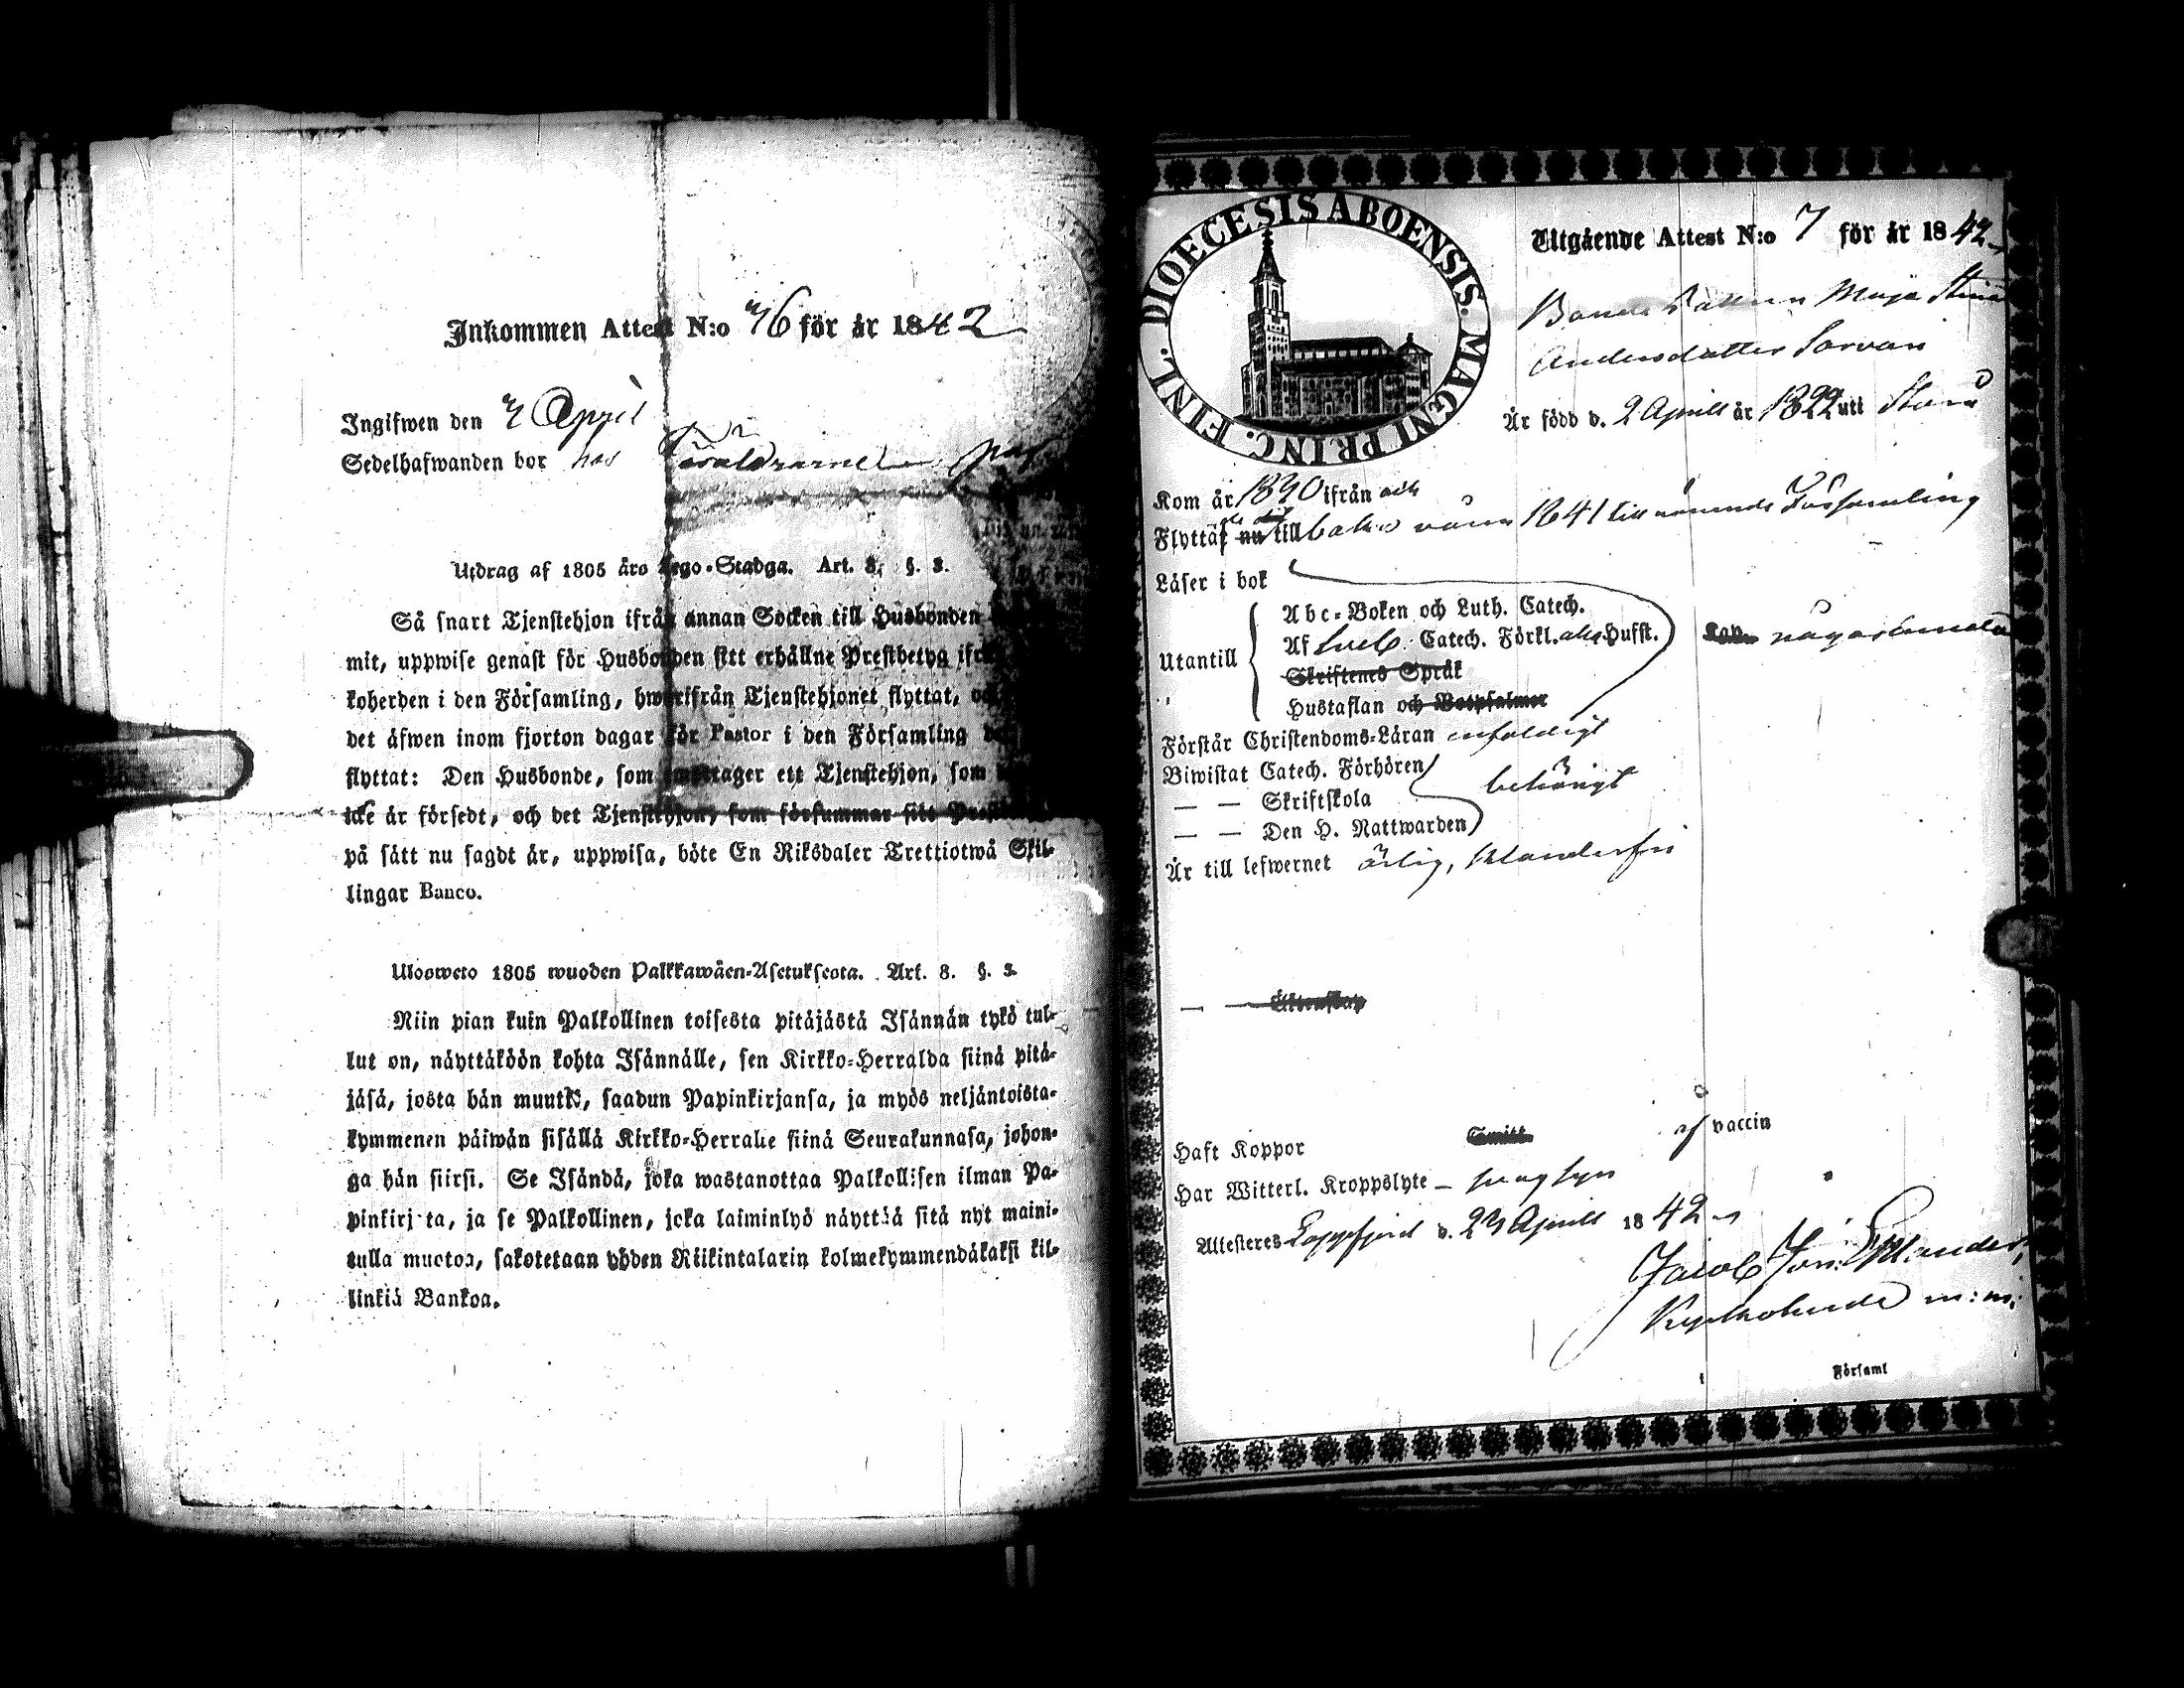 Inkommen Attest N:o 76 för år 1842
Ingifwen den 7 April
Sedelhafwanden bor hos Föräldrarne
Utdrag af 1805 års Lego-Stadga. Art. 8. §. 3.
Så snart Tjenstehjon ifrån annan Socken till Husbonden
mit, uppwise genast för Husbonden sitt erhållne Prestbetyg ifr
koherden i den Församling, hwarifrån Tjenstehjonet flyttat, oc
det äfwen inom fjorton dagar för Pastor i den Församling
flyttat: Den Husbonde, som emottager ett Tjenstehjon, som
icke är försedt, och det Tjenstehjon, som försummar sitt
på sätt nu sagdt är, uppwisa, böte En Riksdaler Trettiotwå Skil-
lingar Banco.
Ulosweto 1805 wuoden Palkkawäen-Asetuksesta. Art. 8. §. 3.
Niin pian kuin Palkollinen toisesta pitäjästä Isännän tykö tul-
lut on, näyttäköön kohta Isännälle, sen Kirkko-Herralda siinä pitä-
jäsä, josta hän muutti, saadun Papinkirjansa, ja myös neljäntoista-
kymmenen päiwän sisällä Kirkko-Herralle siinä Seurakunnasa, johon-
ga hän siirsi. Se Isändä, joka wastanottaa Palkollisen ilman Pa-
pinkirj ta, ja se Palkollinen, joka laiminlyö näyttää sitä nyt maini-
tulla muotoa, sakotetaan yhden Riikintalarin kolmekymmendäkaksi kil-
linkiä Bankoa.
DIOECESIS ABOENSIS. MAGNI PRINC. FINL.
Utgående Attest N:o 7 för år 1842
Maja Stina
Andersdotter
Är född d. 2 Aprill år 1822 uti
Kom år 1840 ifrån
Flyttat nu tillbaka 1841 till Församling
Läser i bok
Utantill
Abc-Boken och Luth. Catech.
Af Sveb. Catech. Förkl. Hufst.
Skriftenes Språk
Hustaflan och Botpsalmer
Förstår Christendoms-Läran enfaldigt
Biwistat Catech. Förhören
— — Skriftskola
— — Den H. Nattwarden
behörigt
Är till lefwernet ärlig, klanderfri
— — Äktenskap
Haft Koppor af vaccin
Har Witterl. Kroppslyte — swag syn
Attesteres Lappfjerd d. 23 Aprill 1842
Jacob
Kyrkoherde m:m:
Förfaml